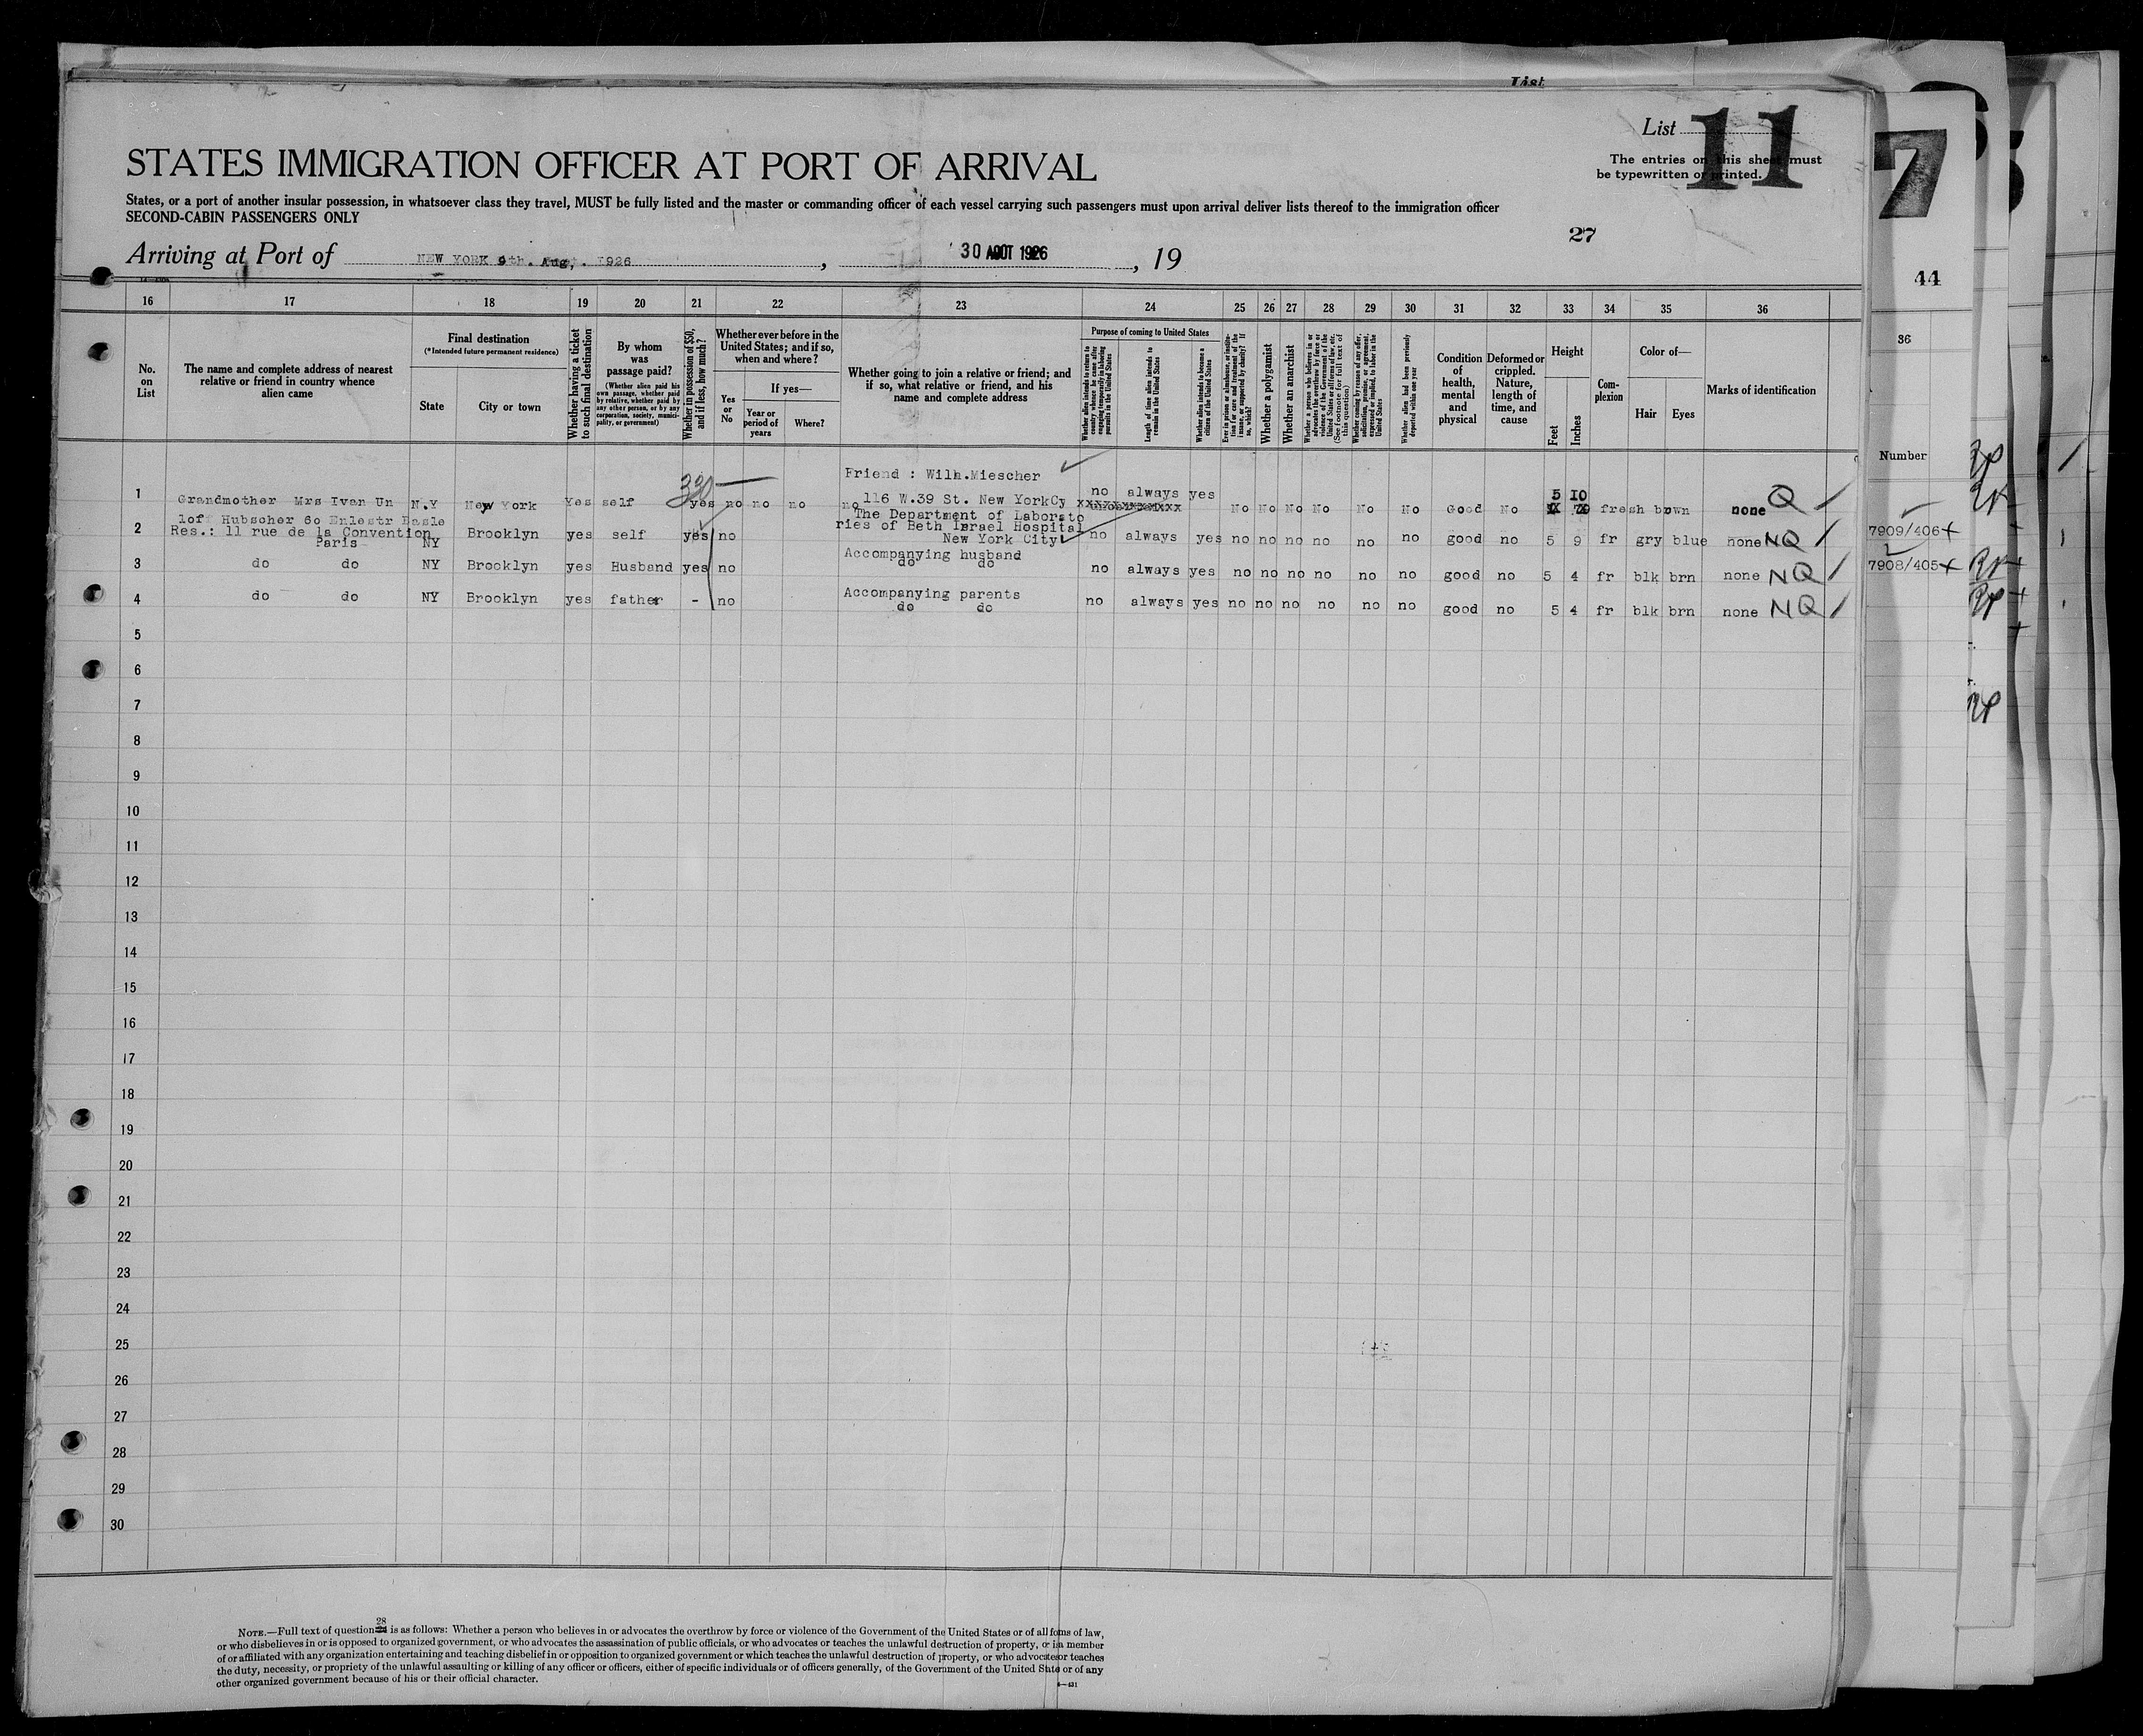 List
List 11
The entries on this sheet must
be typewritten or printed.
7
STATES IMMIGRATION OFFICER AT PORT OF ARRIVAL
States, or a port of another insular possession, in whatsoever class they travel, MUST be fully listed and the master or commanding officer of each vessel carrying such passengers must upon arrival deliver lists thereof to the immigration officer
SECOND-CABIN PASSENGERS ONLY
27
Arriving at Port of NEW YORK 9th. Aug. 1926, 30 AOUT 1926, 19
44
16 17 18 19 20 21 22 23 24 25 26 27 28 29 30 31 32 33 34 35 36
36
No. on List
The name and complete address of nearest relative or friend in country whence alien came
Final destination
(*Intended future permanent residence)
State
City or town
Whether having a ticket to such final destination
By whom was passage paid?
(Whether alien paid his own passage, whether paid by relative, whether paid by any other person, or by any corporation, society, municipality, or government)
Whether in possession of $50, and if less, how much?
Whether ever before in the United States; and if so, when and where?
Yes or No
If yes—
Year or period of years
Where?
Whether going to join a relative or friend; and if so, what relative or friend, and his name and complete address
Purpose of coming to United States
Whether alien intends to return to country whence he came after engaging temporarily in laboring pursuits in the United States
Length of time alien intends to remain in the United States
Whether alien intends to become a citizen of the United States
Ever in prison or almshouse, or institution for care and treatment of the insane, or supported by charity? If so, which?
Whether a polygamist
Whether an anarchist
Whether a person who believes in or advocates the overthrow by force or violence of the Government of the United States or all forms of law, etc. (See footnote for full text of this question)
Whether coming by reason of any offer, solicitation, promise, or agreement, expressed or implied, to labor in the United States
Whether alien had been previously deported within one year
Condition of health, mental and physical
Deformed or crippled. Nature, length of time, and cause
Height
Feet
Inches
Complexion
Color of—
Hair
Eyes
Marks of identification
Number
Friend : Wilh.Miescher
1 Grandmother Mrs Ivan Un N.Y New York Yes self 330 yes no no no no 116 W.39 St. New YorkCy no always yes No No No No No No Good No 5 10 fresh brown none Q
lof Hubscher 60 Enlestr Basle
The Department of Laborato
2 Res.: 11 rue de la Convention NY Brooklyn yes self yes no ries of Beth Israel Hospital no always yes no no no no no no good no 5 9 fr gry blue none NQ 7909/406+
Paris
New York City
Accompanying husband
3 do do NY Brooklyn yes Husband yes no do do no always yes no no no no no no good no 5 4 fr blk brn none NQ 7908/405+
Accompanying parents
4 do do NY Brooklyn yes father - no do do no always yes no no no no no no good no 5 4 fr blk brn none NQ
5
6
7
8
9
10
11
12
13
14
15
16
17
18
19
20
21
22
23
24
25
26
27
28
29
30
NOTE.—Full text of question 28 is as follows: Whether a person who believes in or advocates the overthrow by force or violence of the Government of the United States or of all foms of law,
or who disbelieves in or is opposed to organized government, or who advocates the assassination of public officials, or who advocates or teaches the unlawful destruction of property, or is a member
of or affiliated with any organization entertaining and teaching disbelief in or opposition to organized government or which teaches the unlawful destruction of property, or who advocates or teaches
the duty, necessity, or propriety of the unlawful assaulting or killing of any officer or officers, either of specific individuals or of officers generally, of the Government of the United State or of any
other organized government because of his or their official character.